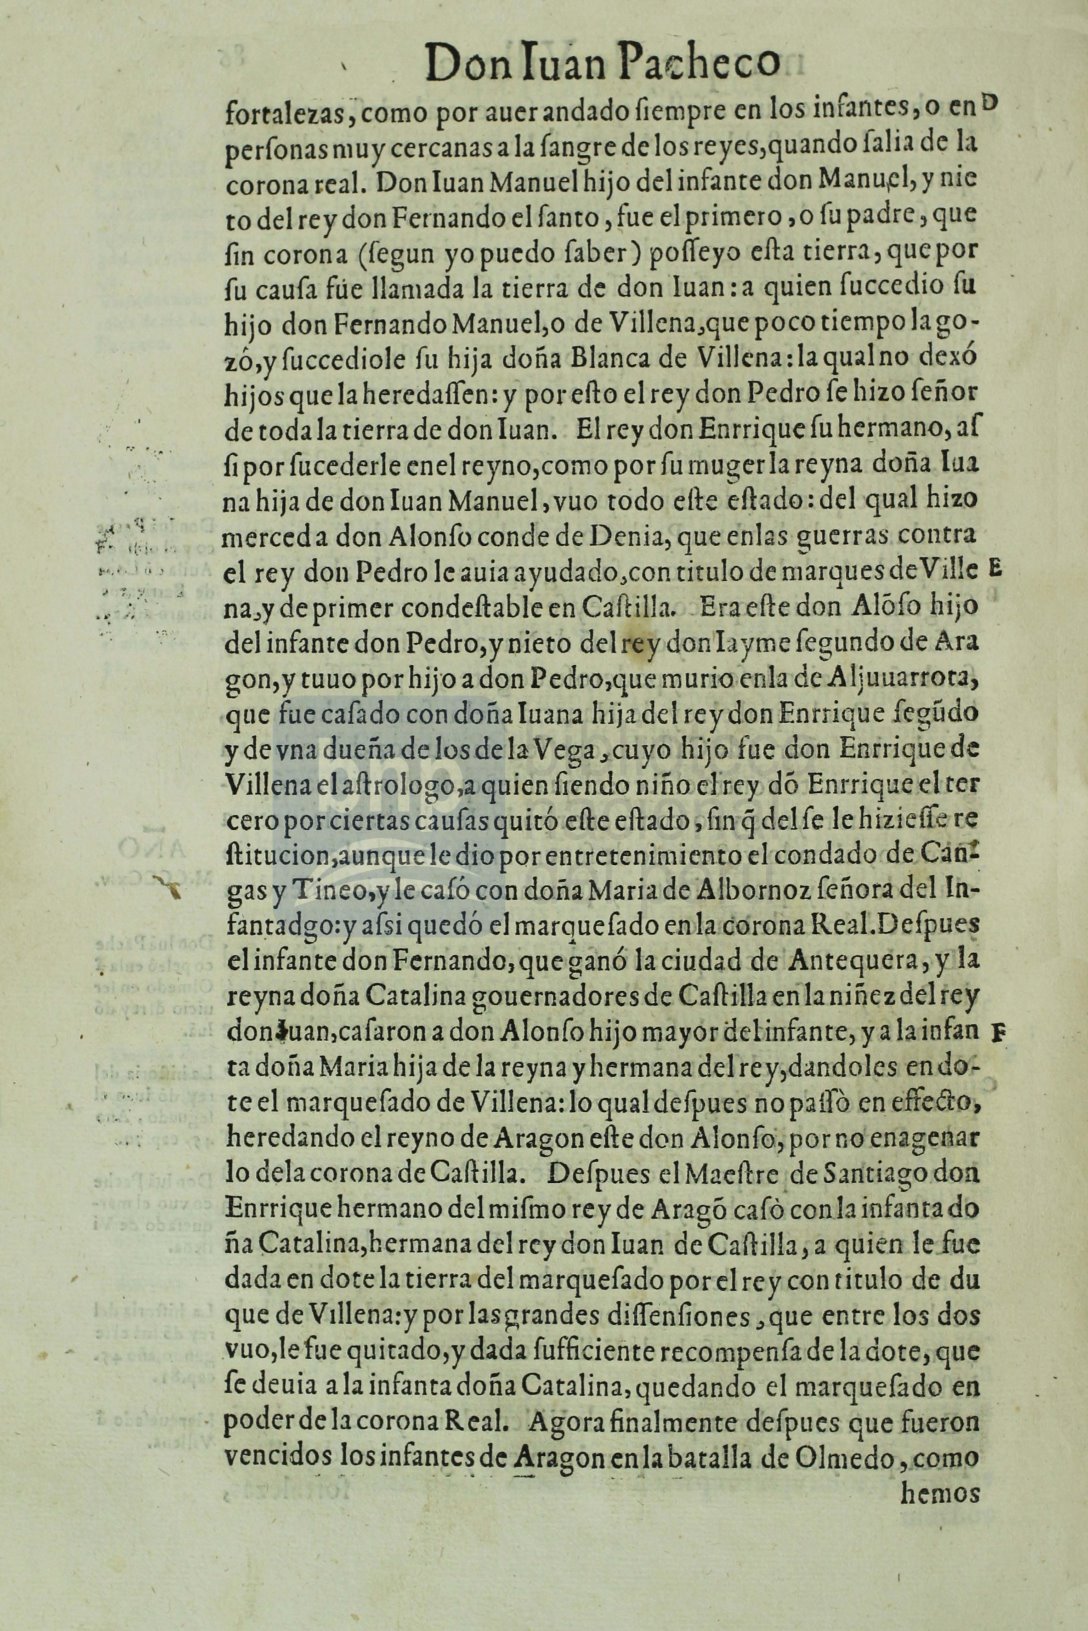 Don Iuan Pacheco
fortalezas, como por auer andado ſiempre en los infantes, o en D
perſonas muy cercanas a la ſangre de los reyes, quando ſalia de la
corona real. Don Iuan Manuel hijo del infante don Manuel, y nie
to del rey don Fernando el ſanto, fue el primero, o ſu padre, que
ſin corona (ſegun yo puedo ſaber) poſſeyo eſta tierra, que por
ſu cauſa fue llamada la tierra de don Iuan: a quien ſuccedio ſu
hijo don Fernando Manuel, o de Villena, que poco tiempo la go-
zó, y ſuccediole ſu hija doña Blanca de Villena: la qual no dexó
hijos que la heredaſſen: y por eſto el rey don Pedro ſe hizo ſeñor
de toda la tierra de don Iuan. El rey don Enrrique ſu hermano, aſ
ſi por ſucederle enel reyno, como por ſu muger la reyna doña Iua
na hija de don Iuan Manuel, vuo todo eſte eſtado: del qual hizo
merced a don Alonſo conde de Denia, que enlas guerras contra
el rey don Pedro le auia ayudado, con titulo de marques de Ville E
na, y de primer condeſtable en Caſtilla. Era eſte don Alōſo hijo
del infante don Pedro, y nieto del rey don Iayme ſegundo de Ara
gon, y tuuo por hijo a don Pedro, que murio enla de Aljuuarrota,
que fue caſado con doña Iuana hija del rey don Enrrique ſegūdo
y de vna dueña de los de la Vega, cuyo hijo fue don Enrrique de
Villena el aſtrologo, a quien ſiendo niño el rey dō Enrrique el ter
cero por ciertas cauſas quitó eſte eſtado, ſin q̃ del ſe le hizieſſe re
ſtitucion, aunque le dio por entretenimiento el condado de Can-
gas y Tineo, y le caſó con doña Maria de Albornoz ſeñora del In-
fantadgo: y aſsi quedó el marqueſado en la corona Real. Deſpues
el infante don Fernando, que ganó la ciudad de Antequera, y la
reyna doña Catalina gouernadores de Caſtilla en la niñez del rey
don Iuan, caſaron a don Alonſo hijo mayor del infante, y a la infan F
ta doña Maria hija de la reyna y hermana del rey, dandoles en do-
te el marqueſado de Villena: lo qual deſpues no paſſò en effecto,
heredando el reyno de Aragon eſte don Alonſo, por no enagenar
lo dela corona de Caſtilla. Deſpues el Maeſtre de Santiago don
Enrrique hermano del miſmo rey de Aragō caſò con la infanta do
ña Catalina, hermana del rey don Iuan de Caſtilla, a quien le fue
dada en dote la tierra del marqueſado por el rey con titulo de du
que de Villena: y por las grandes diſſenſiones, que entre los dos
vuo, le fue quitado, y dada ſufficiente recompenſa de la dote, que
ſe deuia a la infanta doña Catalina, quedando el marqueſado en
poder de la corona Real. Agora finalmente deſpues que fueron
vencidos los infantes de Aragon en la batalla de Olmedo, como
hemos